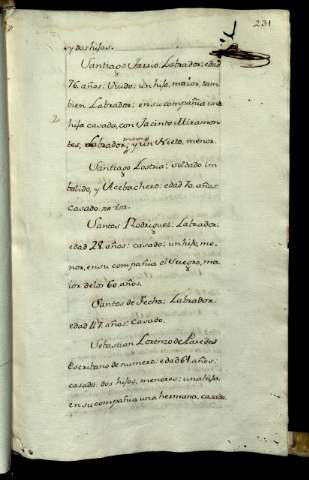 231
y dos hijas.
Santiago Jarrio. Labrador: edad
76. años: Viudo: un hijo, maior, tam
bien Labrador: en su compañia una
2 hija casada, con Jacinto Miramon
tes, Labrador, y un Nieto, menor.
Santiago Lostria: soldado in
balido, y Azebachero: edad 70. años
casado.
Santos Rodriguez: Labrador:
edad 28. años: casado: un hijo, me
nor, en su compañia el Suegro, ma
ior de los 60 años.
Santos de Jecha: Labrador.
edad 47. años: Casado.
Sebastian Lorenzo de Paredes
Escribano de numero: edad 61. años:
casado: dos hijos, menores: una hija.
en su compañia una hermana, casada.